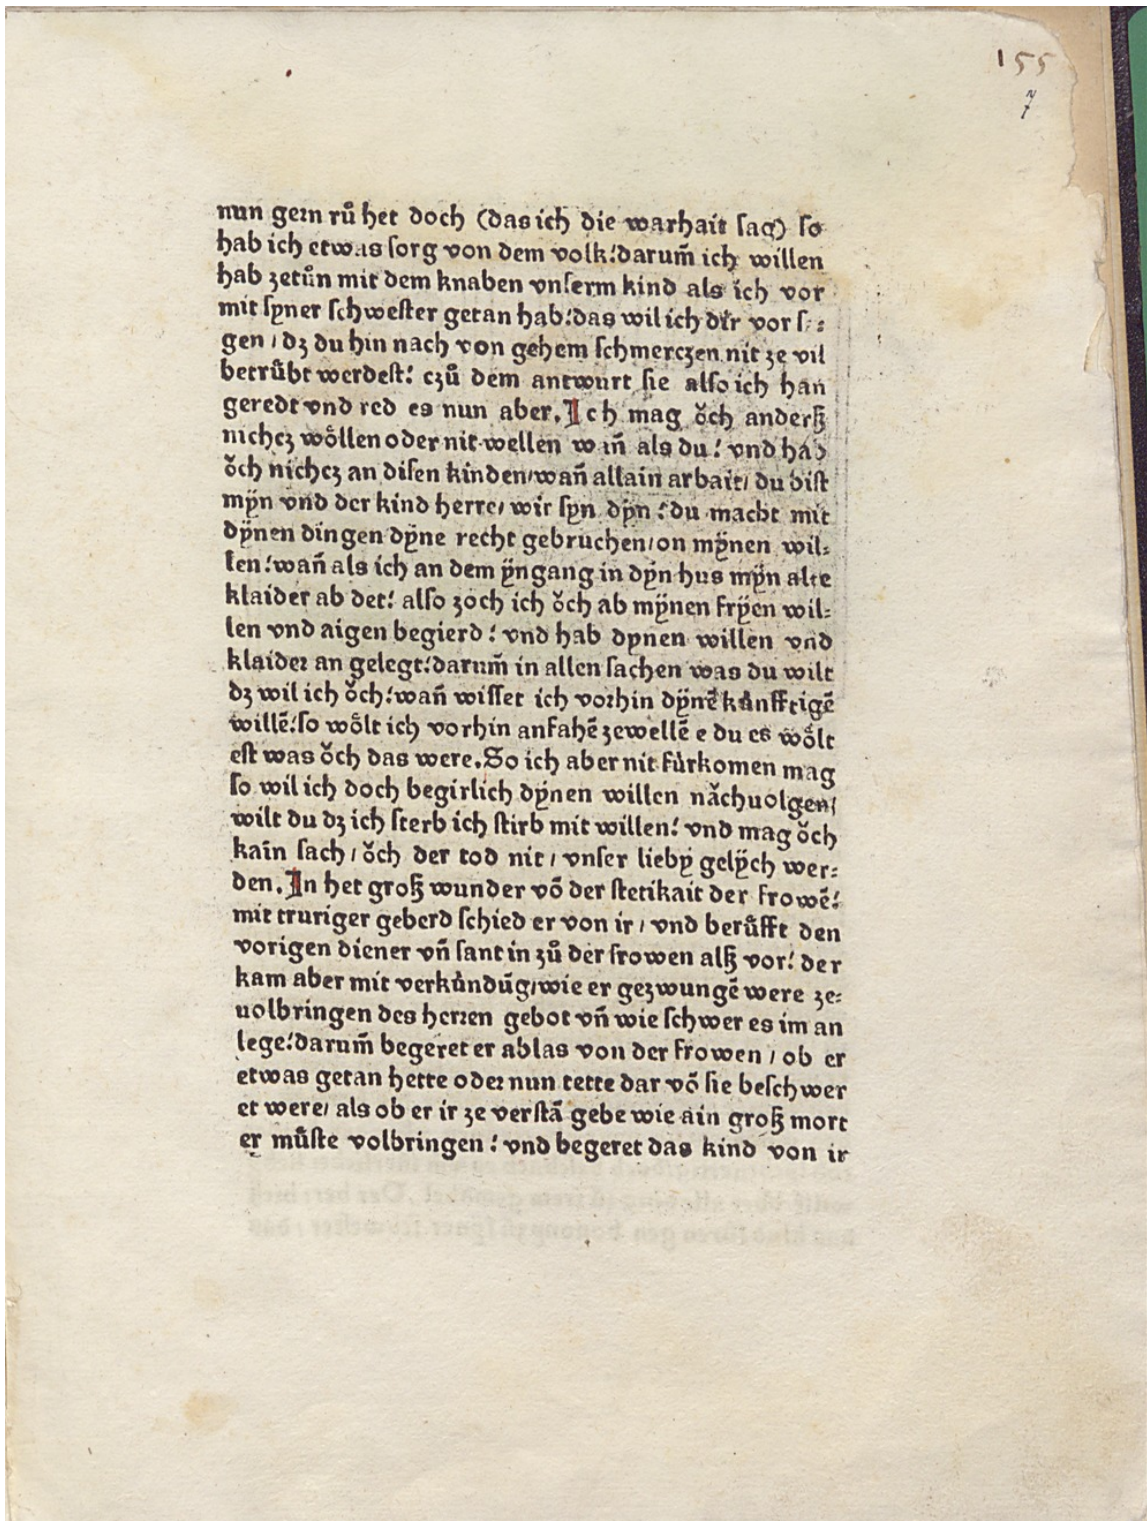 155
7
nun gern rů het doch (das ich die warhait sag) so
hab ich etwas sorg von dem volk! darum̃ ich willen
hab zetůn mit dem knaben vnserm kind als ich vor
mit syner schwester getan hab! das wil ich dir vor s:
gen / dz du hin nach von gehem schmerczen nit ze vil
betrůbt werdest! czů dem antwurt sie also ich han
geredt vnd red es nun aber. Ich mag ǒch anderß
nichcz wǒllen oder nit wellen wañ als du! vnd hab
ǒch nichcz an disen kinden / wañ allain arbait / du bist
mÿn vnd der kind herre / wir syn dÿn! du macht mit
dÿnen dingen dÿne recht gebruchen / on mÿnen wil:
len! wañ als ich an dem ÿngang in dÿn hus mÿn alte
klaider ab det! also zoch ich ǒch ab mÿnen frÿen wil:
len vnd aigen begierd! vnd hab dynen willen vnd
klaider an gelegt! darum̃ in allen sachen was du wilt
dz wil ich ǒch! wañ wisset ich vorhin dÿnẽ kůnfftigẽ
willẽ! so wǒlt ich vorhin anfahẽ zewellẽ e du es wǒlt
est was ǒch das were. So ich aber nit fůrkomen mag
so wil ich doch begirlich dÿnen willen nǎchuolgen /
wilt du dz ich sterb ich stirb mit willen! vnd mag ǒch
kain sach / ǒch der tod nit / vnser lieby gelÿch wer:
den. In het groß wunder võ der stetikait der frowẽ!
mit truriger geberd schied er von ir / vnd berůfft den
vorigen diener vñ sant in zů der frowen alß vor! der
kam aber mit verkůndũg / wie er gezwungẽ were ze:
uolbringen des herren gebot vñ wie schwer es im an
lege! darum̃ begeret er ablas von der frowen / ob er
etwas getan hette oder nun tette dar võ sie beschwer
et were / als ob er ir ze verstã gebe wie ain groß mort
er můste volbringen! vnd begeret das kind von ir